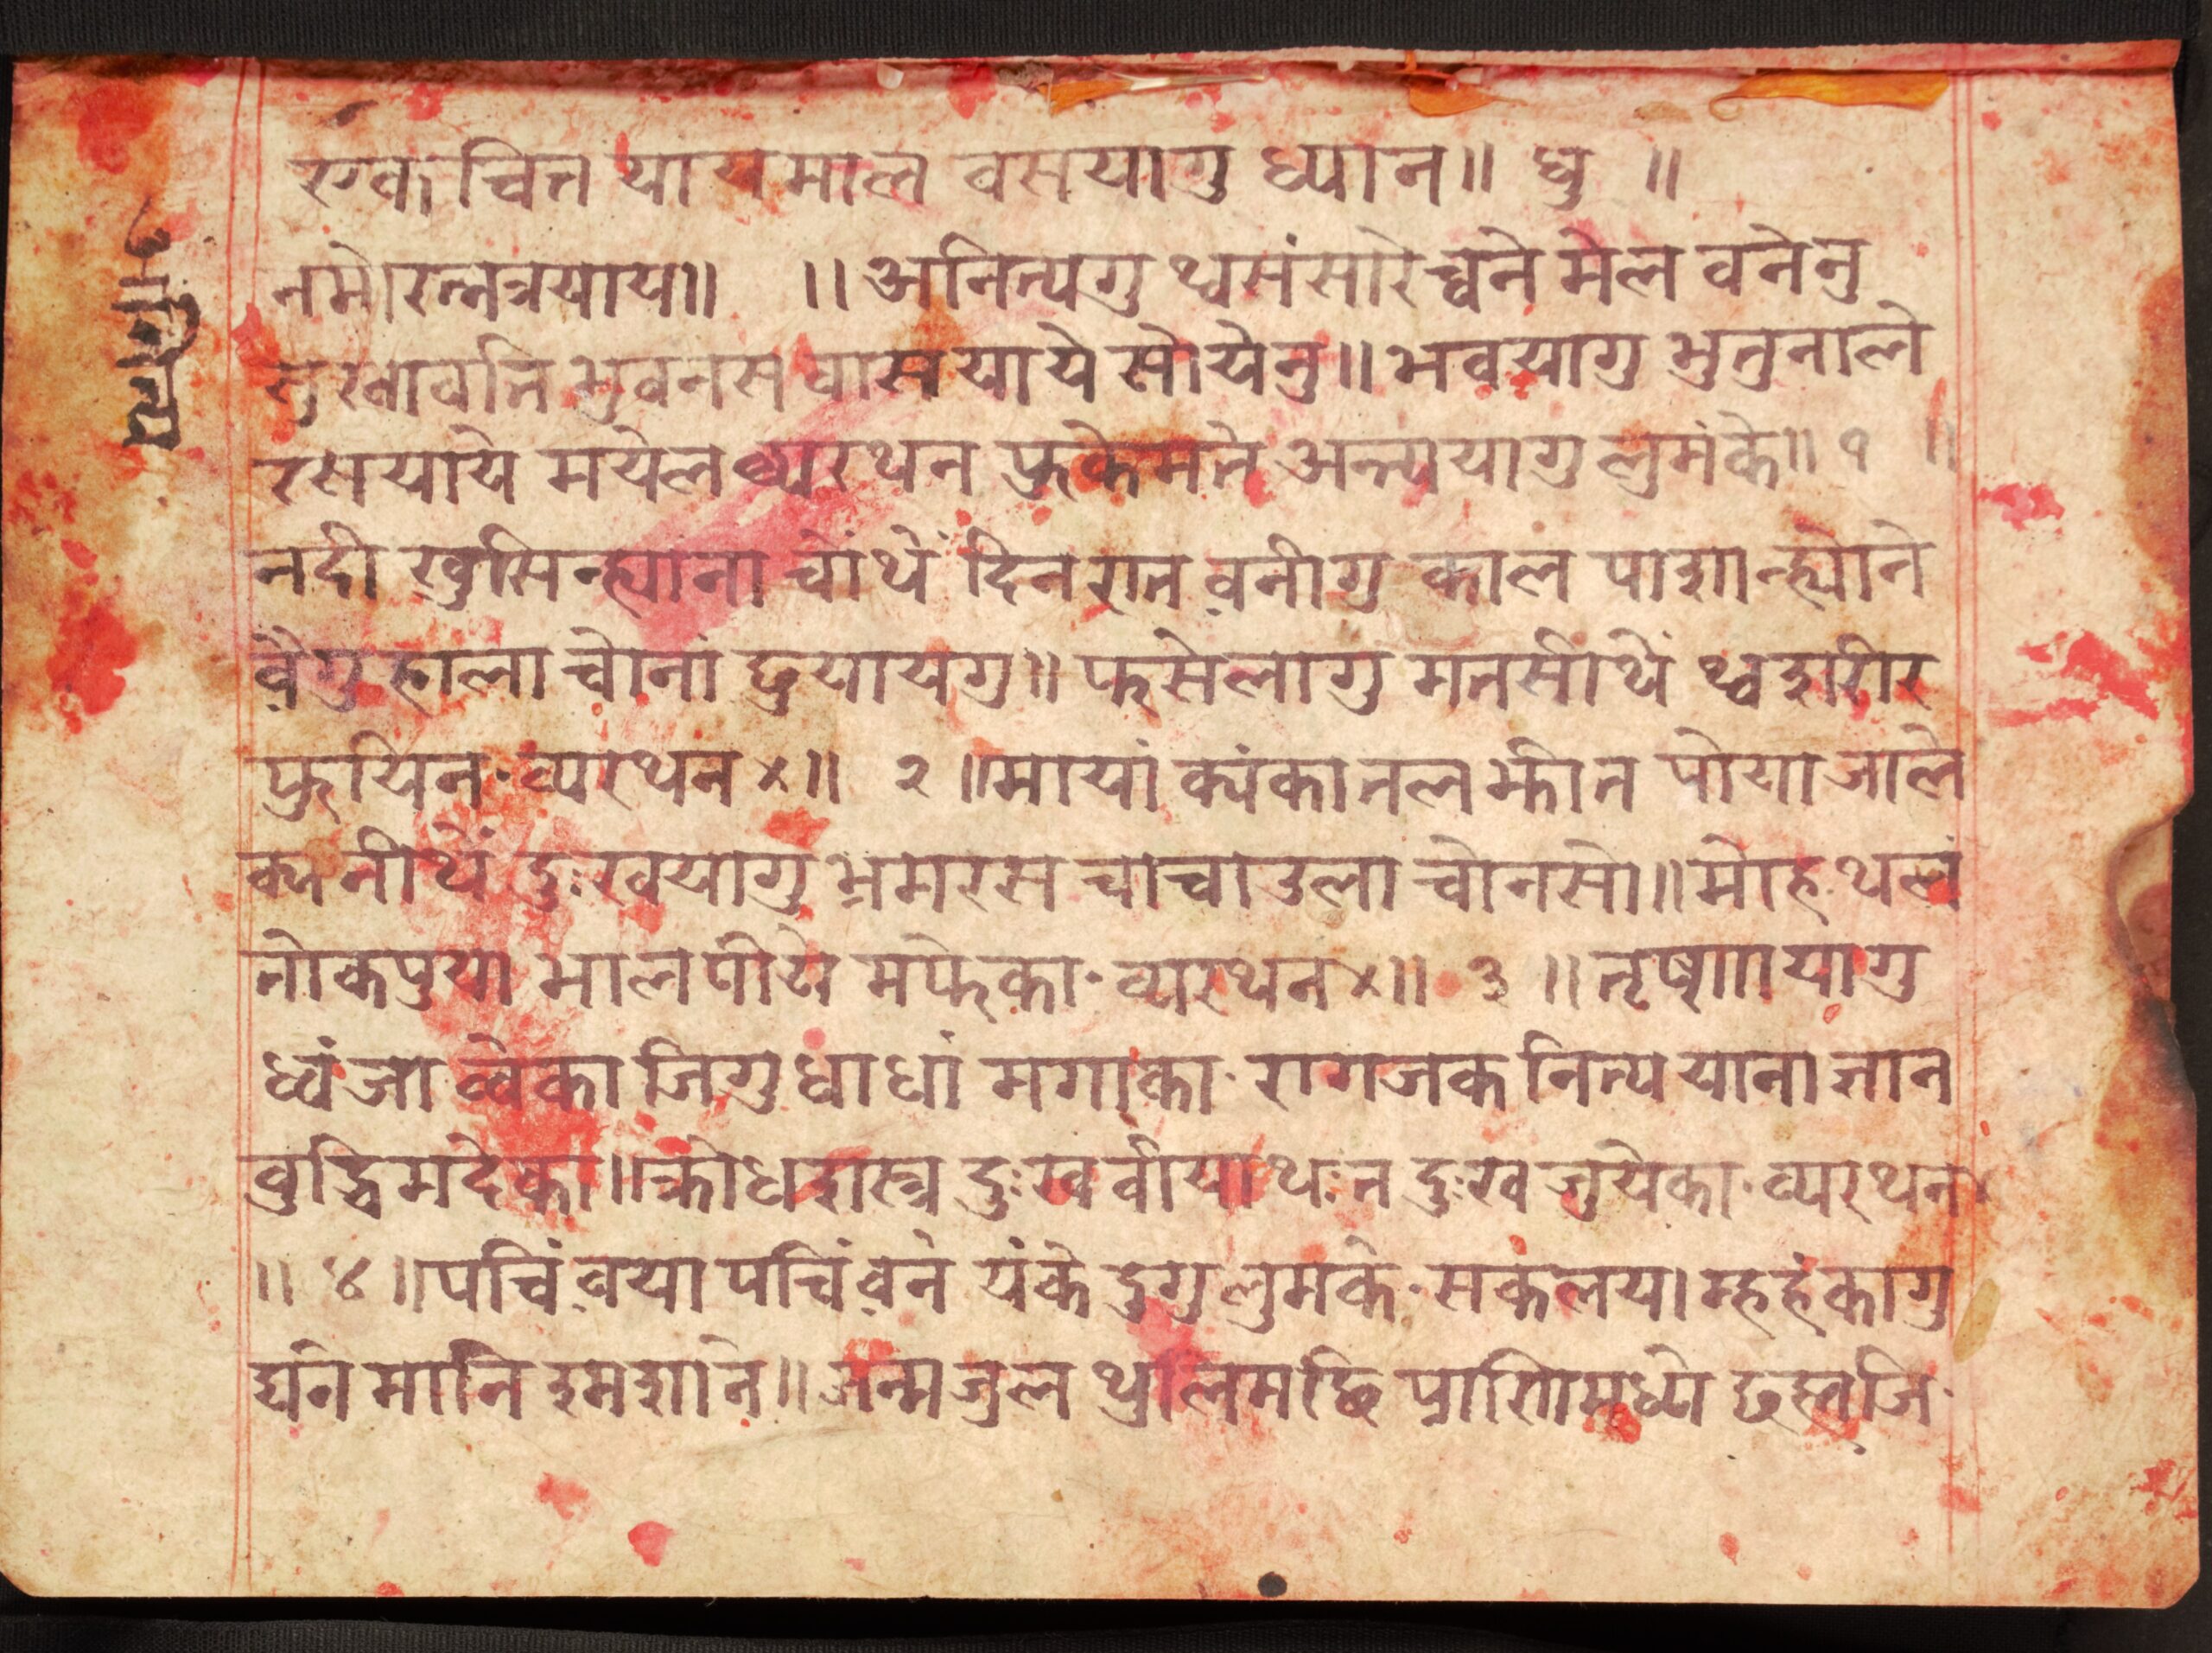 एकचित्त यायमाल वसयागु ध्यान॥ घु ॥
नमोरत्नत्रयाय॥ ॥अनित्यगु थ्वसंसारे च्वने मेल वनेनु
सुखावति भुवनस वास याये सोयेनु॥भवयागु भुतुनाले
रसयाये मयेल व्यरथन फुकेमते अन्त्ययागु लुमंके॥१॥
नदी खुसिन्ह्याना चोंथें दिनरात वनीगु काल पाशा न्ह्योने
वैगु हाला चोना छुयायगु॥फसेलागु मतसीथें थ्वशरीर
फुयिन·व्यरथन×॥ २॥मायां क्यंकातल झीत पोयाजाले
क्यनीथें दुःखयागु भ्रमरस चाचाउला चोनसो॥मोह थलं
तोकपुया भालपीये मफेका·व्यरथन×॥ ३ ॥तृष्णायागु
ध्वंजा व्वेका जिगु धाधां मगाका·रागजक नित्य याना ज्ञान
वुद्धि मदेका॥क्रोधशस्त्र दुःखवीया थःत दुःख जुयेका·व्यरथन×
॥ ४॥पचिंवया पचिंवने यंके दुगु लुमके·सकलया म्हहंकागु
द्यने मानि श्मशाने॥जन्मजुल थुलिमछि प्राणिमध्ये छस्वजि·
अनित्य